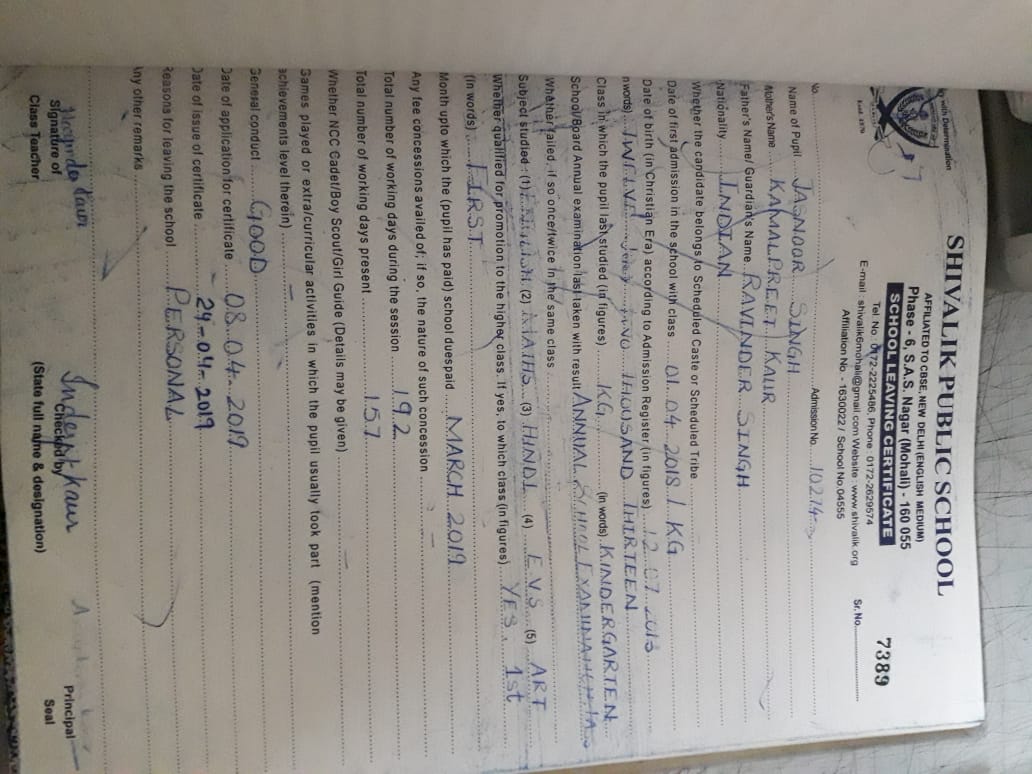 with Determination
Estd. 1970
SHIVALIK PUBLIC SCHOOL
AFFILIATED TO CBSE, NEW DELHI (ENGLISH MEDIUM)
Phase - 6, S.A.S. Nagar (Mohali) - 160 055
SCHOOL LEAVING CERTIFICATE
Tel No. 0172-2225486, Phone : 0172-2629574
E-mail : shivalik6mohali@gmail.com Website : www.shivalik.org
Affiliation No. - 1630022 / School No. 04555
Sr. No. 7389
No. Admission No. 10214
Name of Pupil JASNOOR SINGH
Mother's Name KAMALPREET KAUR
Father's Name/Guardian's Name RAVINDER SINGH
Nationality INDIAN
Whether the candidate belongs to Scheduled Caste or Scheduled Tribe
Date of first admission in the school with class 01.04.2018 / KG
Date of birth (in Christian Era) according to Admission Register (in figures) 12.07.2013
words) TWELVE July TWO THOUSAND THIRTEEN
Class in which the pupil last studied (in figures) KG (in words) KINDERGARTEN
School/Board Annual examination last taken with result ANNUAL SCHOOL EXAMINATION
Whether failed, if so once/twice in the same class
Subject studied : (1) ENGLISH (2) MATHS (3) HINDI (4) E.V.S. (5) ART
Whether qualified for promotion to the higher class. If yes, to which class (in figures) YES, 1st
(In words) FIRST
Month upto which the (pupil has paid) school dues paid MARCH 2019
Any fee concessions availed of; if so, the nature of such concession –
Total number of working days during the session 192
Total number of working days present 157
Whether NCC Cadet/Boy Scout/Girl Guide (Details may be given) –
Games played or extra/curricular activities in which the pupil usually took part (mention
achievements level therein) –
General conduct GOOD
Date of application for certificate 08.04.2019
Date of issue of certificate 29-04-2019
Reasons for leaving the school PERSONAL
Any other remarks
Kaur Inderjit kaur
Signature of Checked by Principal
Class Teacher (State full name & designation) Seal